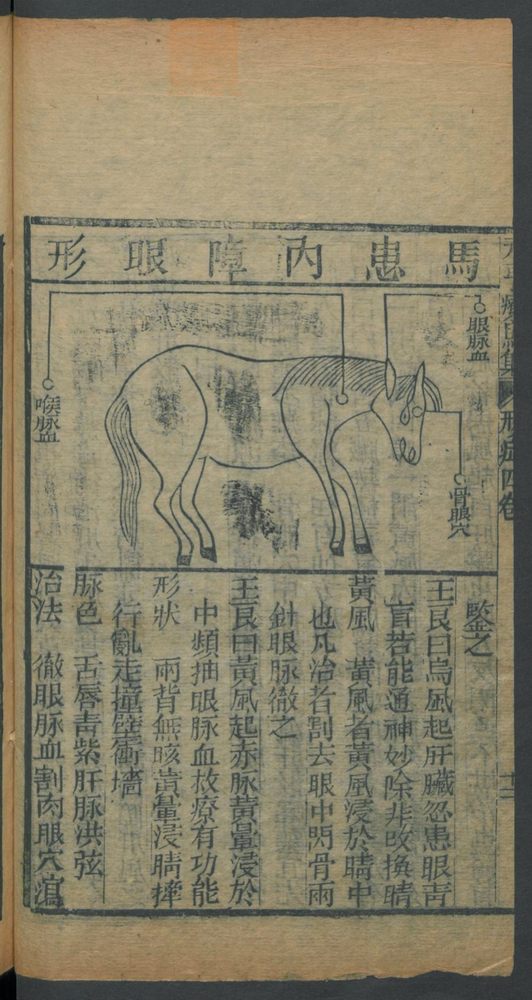 馬患內障眼形
眼脉血
骨眼穴
喉脉血
鑒之
王良曰烏風起肝臟忽患眼靑
盲若能通神妙除非改換睛
黃風　黃風者黃風浸於睛中
也凡治者割去眼中閃骨兩
針眼脉徹之
王良曰黃風起赤脉黃暈浸於
中頻抽眼脉血救療有功能
形狀　兩背無眵黃暈浸睛
行亂走撞壁衝墻
脉色　舌唇靑紫肝脉洪弦
治法　徹眼脉血割肉眼穴